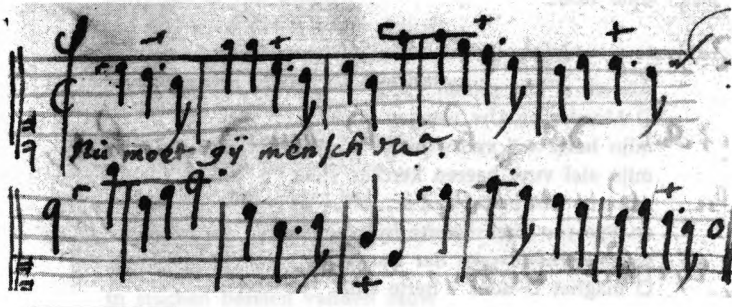 Nu moet gÿ mensch